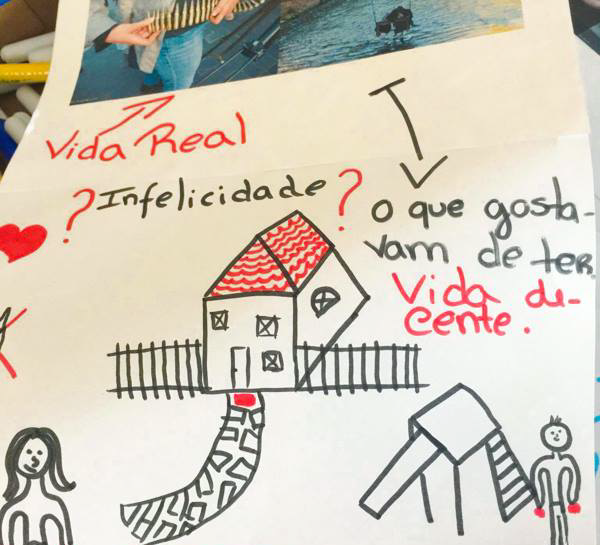 Vida Real
? Infelicidade ?
o que gosta-
vam de ter.
Vida de-
cente.